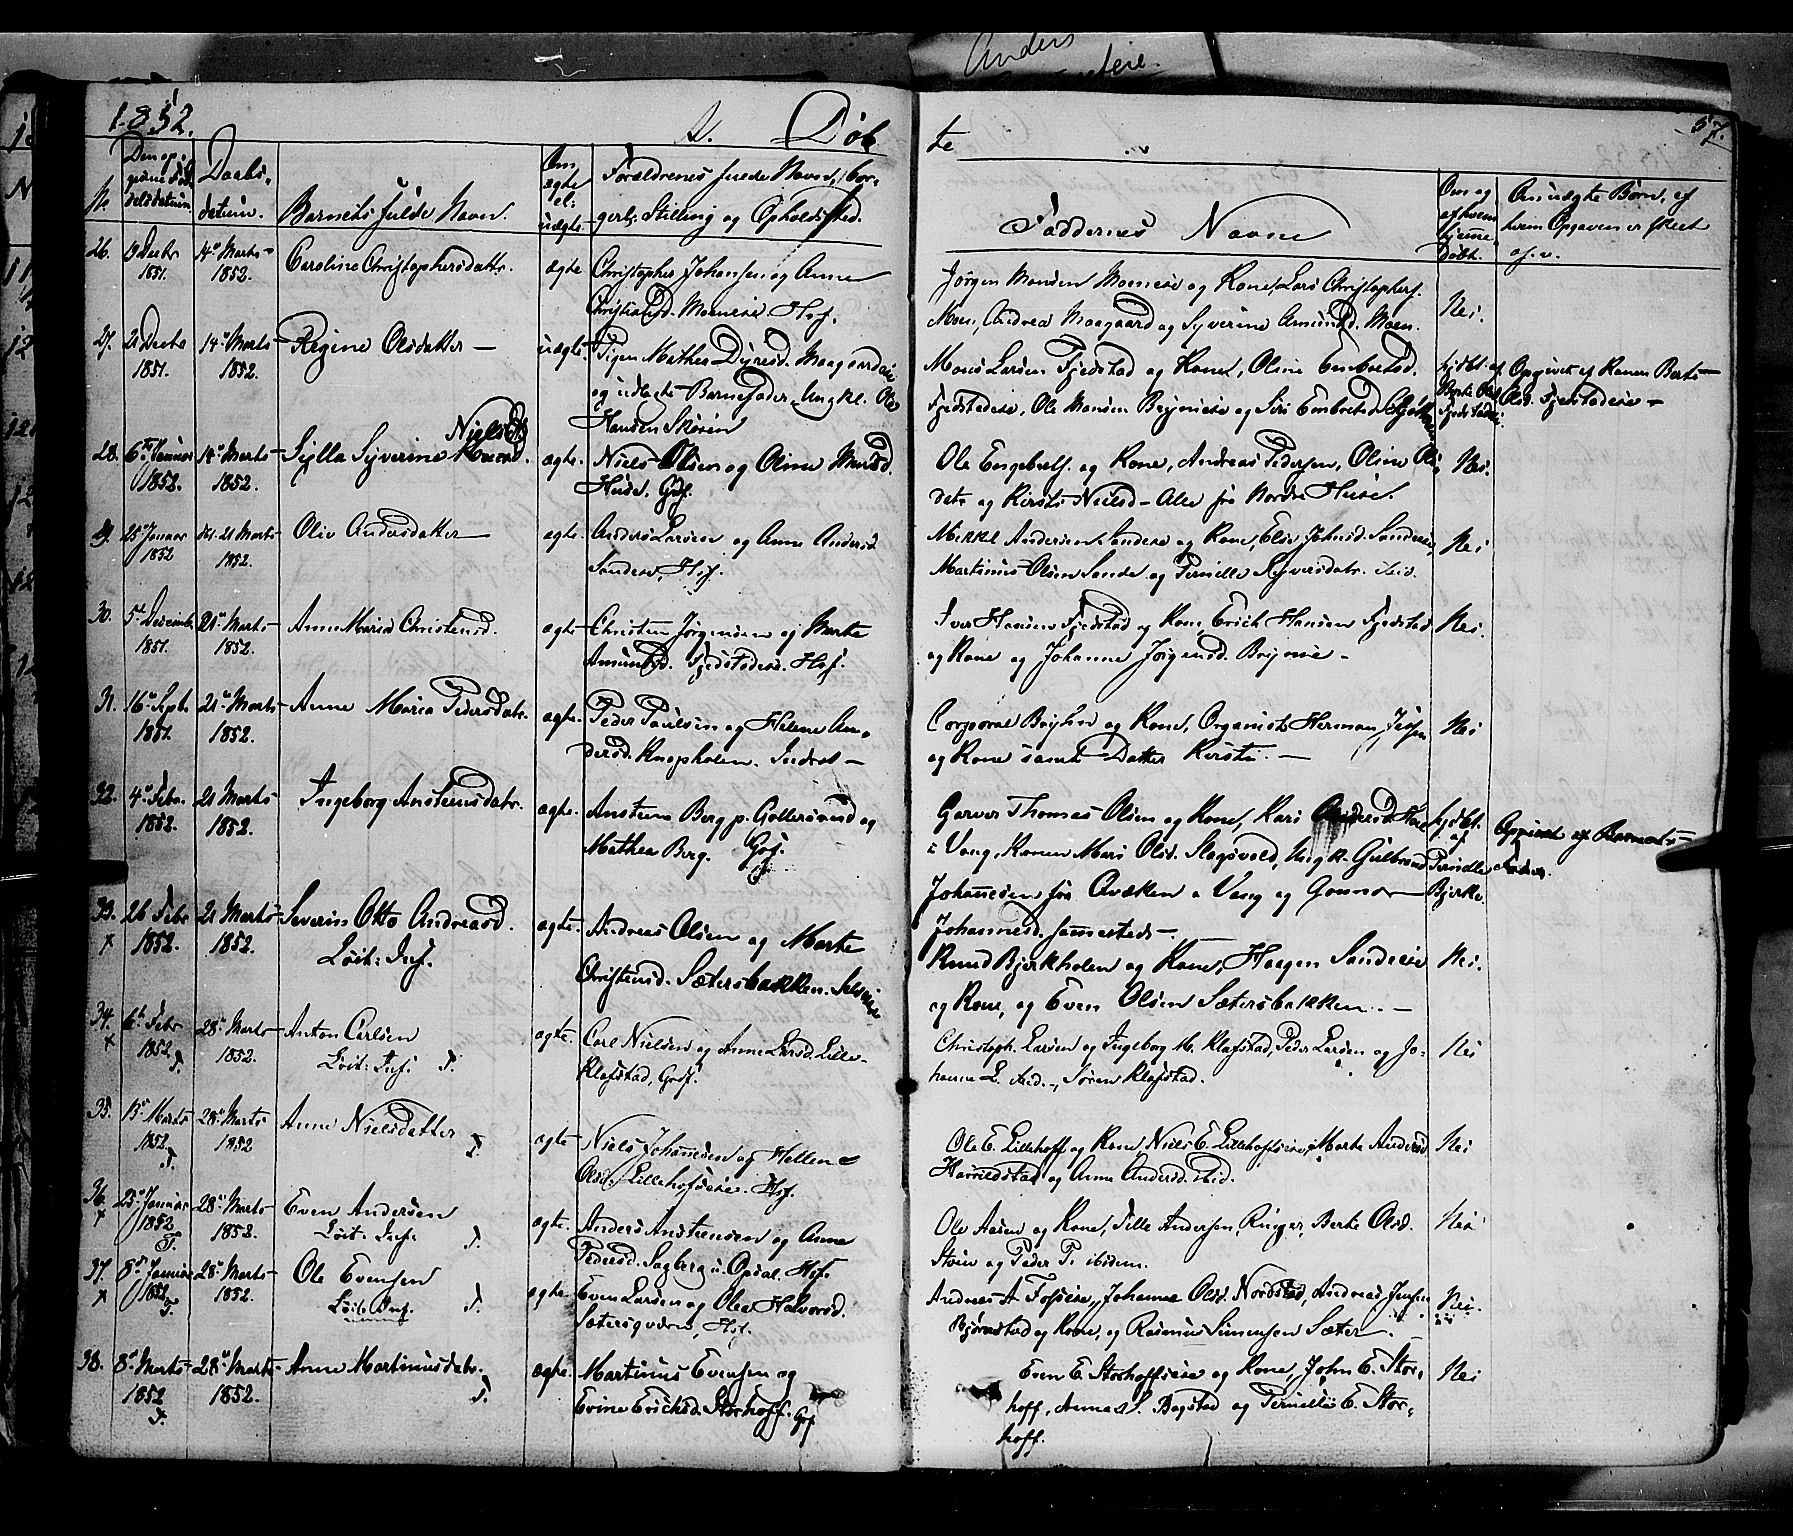 Anders
1852.
A. Døb
te
57.
No.
Den op-
givne Fød-
selsdatum.
Daabs-
datum.
Barnets fulde Navn.
Om
ægte
el.
uægte.
Forældrenes fulde Navn, bor-
gerl: Stilling og Opholdsted.
Faddernes Navne
Om og
af hvem
hjemme
døbt.
Om uægte Børn, af
hvem Opgaven er skeet
26. 9 Decbr 1851. 14de Marts 1852. Caroline Christophersdattr. ægte Christopher Johansen og Anne
Christiansd. Moeneie Hof.
Jørgen Monsen Moeneie og Kone, Lars Christophers.
Moen, Andrea Maagaard og Syverine Amundsd. Moen. Nei.
27. 21 Decbr 1851. 14de Marts 1852. Regine Olsdatter uægte Pigen Mathea Dyresd.
og udlagte Barnefader, Ungkl. Ole
Hansen Skøien
Mons Larsen Fjedstad og Kone, Oline Embretsd.
Fjedstadeie, Ole Monsen Brynieie og Siri Embretsd.
hjdbt. af Berte Olsd. Fjedstadeie. Opgivet af Konen Berte
Olsd. Fjedstadeie
28. 6te Januar 1852. 14de Marts 1852. Sylla Syverine Nielsd. ægte. Niels Olsen og Oline
Huse. Hof.
Ole Engebrets. og Kone, Andreas Pedersen, Oline Ols-
datr og Kirsti Nielsd. Alle fra Nordre Huse. Nei.
29. 25de Januar 1852 21 Marts 1852. Olive Andersdatter ægte. Anders Larsen og Anne Andersd.
Sandeie, Hof.
Mikkel Andersen Sandeie og Kone, Elie Johnsd. Sandeie,
Martinus Olsen Sande og Pernille Syversdatr. ibid. Nei
30. 5te Decemb. 1851. 21de Marts 1852. Anne Marie Christensd. ægte Christen Jørgensen og Marte
Amundsd. Fjedstadeie. Hof.
Iver Hansen Fjedstad og Kone, Erich Hansen Fjedstad
og Kone og Johanne Jørgensd. Brynieie Nei.
31. 16de Septr. 1851. 21de Marts 1852. Anne Maria Pedersdatr. ægte. Peder Paulsen og Helene An-
dersd. Knapholen. Indset
Corporal Bryhn og Kone, Organist Herman Jessen
og Kone samt Datter Kirsti. Nei
32. 4de Febr. 1852. 21 Marts 1852. Ingeborg Anstensdatr. ægte. Ansten Berg p. Gottersrud og
Mathea Berg. Hof.
Garver Thomas Olsen og Kone, Kari Andersd.
i Vang, Konen Mari Olsd. Slagsvold, Ungk. Gulbrand
Johannesen fra Aaken i Vang og Gunnor
Johannesd. sammesteds.
hjdbt. af Pernille Bjerke. Opgivet af Barnets
Fader.
33. 26 Febr 1852. 21 Marts 1852. Severin Otto Andreasd. ægte. Andreas Olsen og Marte
Løit: Inf. Christensd. Sætersbakken.
Knud Bjerkholen og Kone, Haagen Sandeeie
og Kone, og Even Olsen Sætersbakken. Nei.
34. 6te Febr 1852. 28de Marts 1852. Anton Carlsen ægte. Carl Nielsen og Anne Larsd. Lille-
Løit: Inf. klafstad, Hof.
Christoph. Larsen og Ingeborg M. Klafstad, Peder Larsen og Jo-
hanne L. ibid., Søren Klafstad. Nei
35. 15de Marts 1852. 28de Marts 1852 Anne Nielsdatter ægte Niels Johannesen og Hellene
Olsd. Lillehofseie. Hof.
Ole E. Lillehoff og Kone Niels E. Lillehoffseie, Marte Andersd.
Harrildstad og Anne Andersd. ibid. Nei
36. 25de Januar 1852. 28de Marts 1852. Even Andersen ægte. Anders Anstensen og Anne
Løit: Inf. Pedersd. Sagberg u. Opsal. Hof.
Ole Aasen og Kone, Pelle Andersen Ringer, Berte Olsd.
Støen og Peder P. ibidem. Nei
37. 8de Januar 1852. 28de Marts 1852. Ole Evensen ægte. Even Larsen og Olea Halvorsd.
Løit: Inf. Sætersqvern, Hof.
Andreas A. Fosseie, Johanne Olsd. Nordstad, Andreas Jensen
Bjørnstad og Kone, og Rasmus Simensen Sæter. Nei.
38. 8de Marts 1852 28de Marts 1852. Anne Martinusdatr. ægte. Martinus Evensen og
Evine Erichsd. Storhoff. Hof
Even E. Storhoffseie og Kone, John E. Stor-
hoff, Anne S. Bagstad og Pernille E. Stor-
hoff. Nei